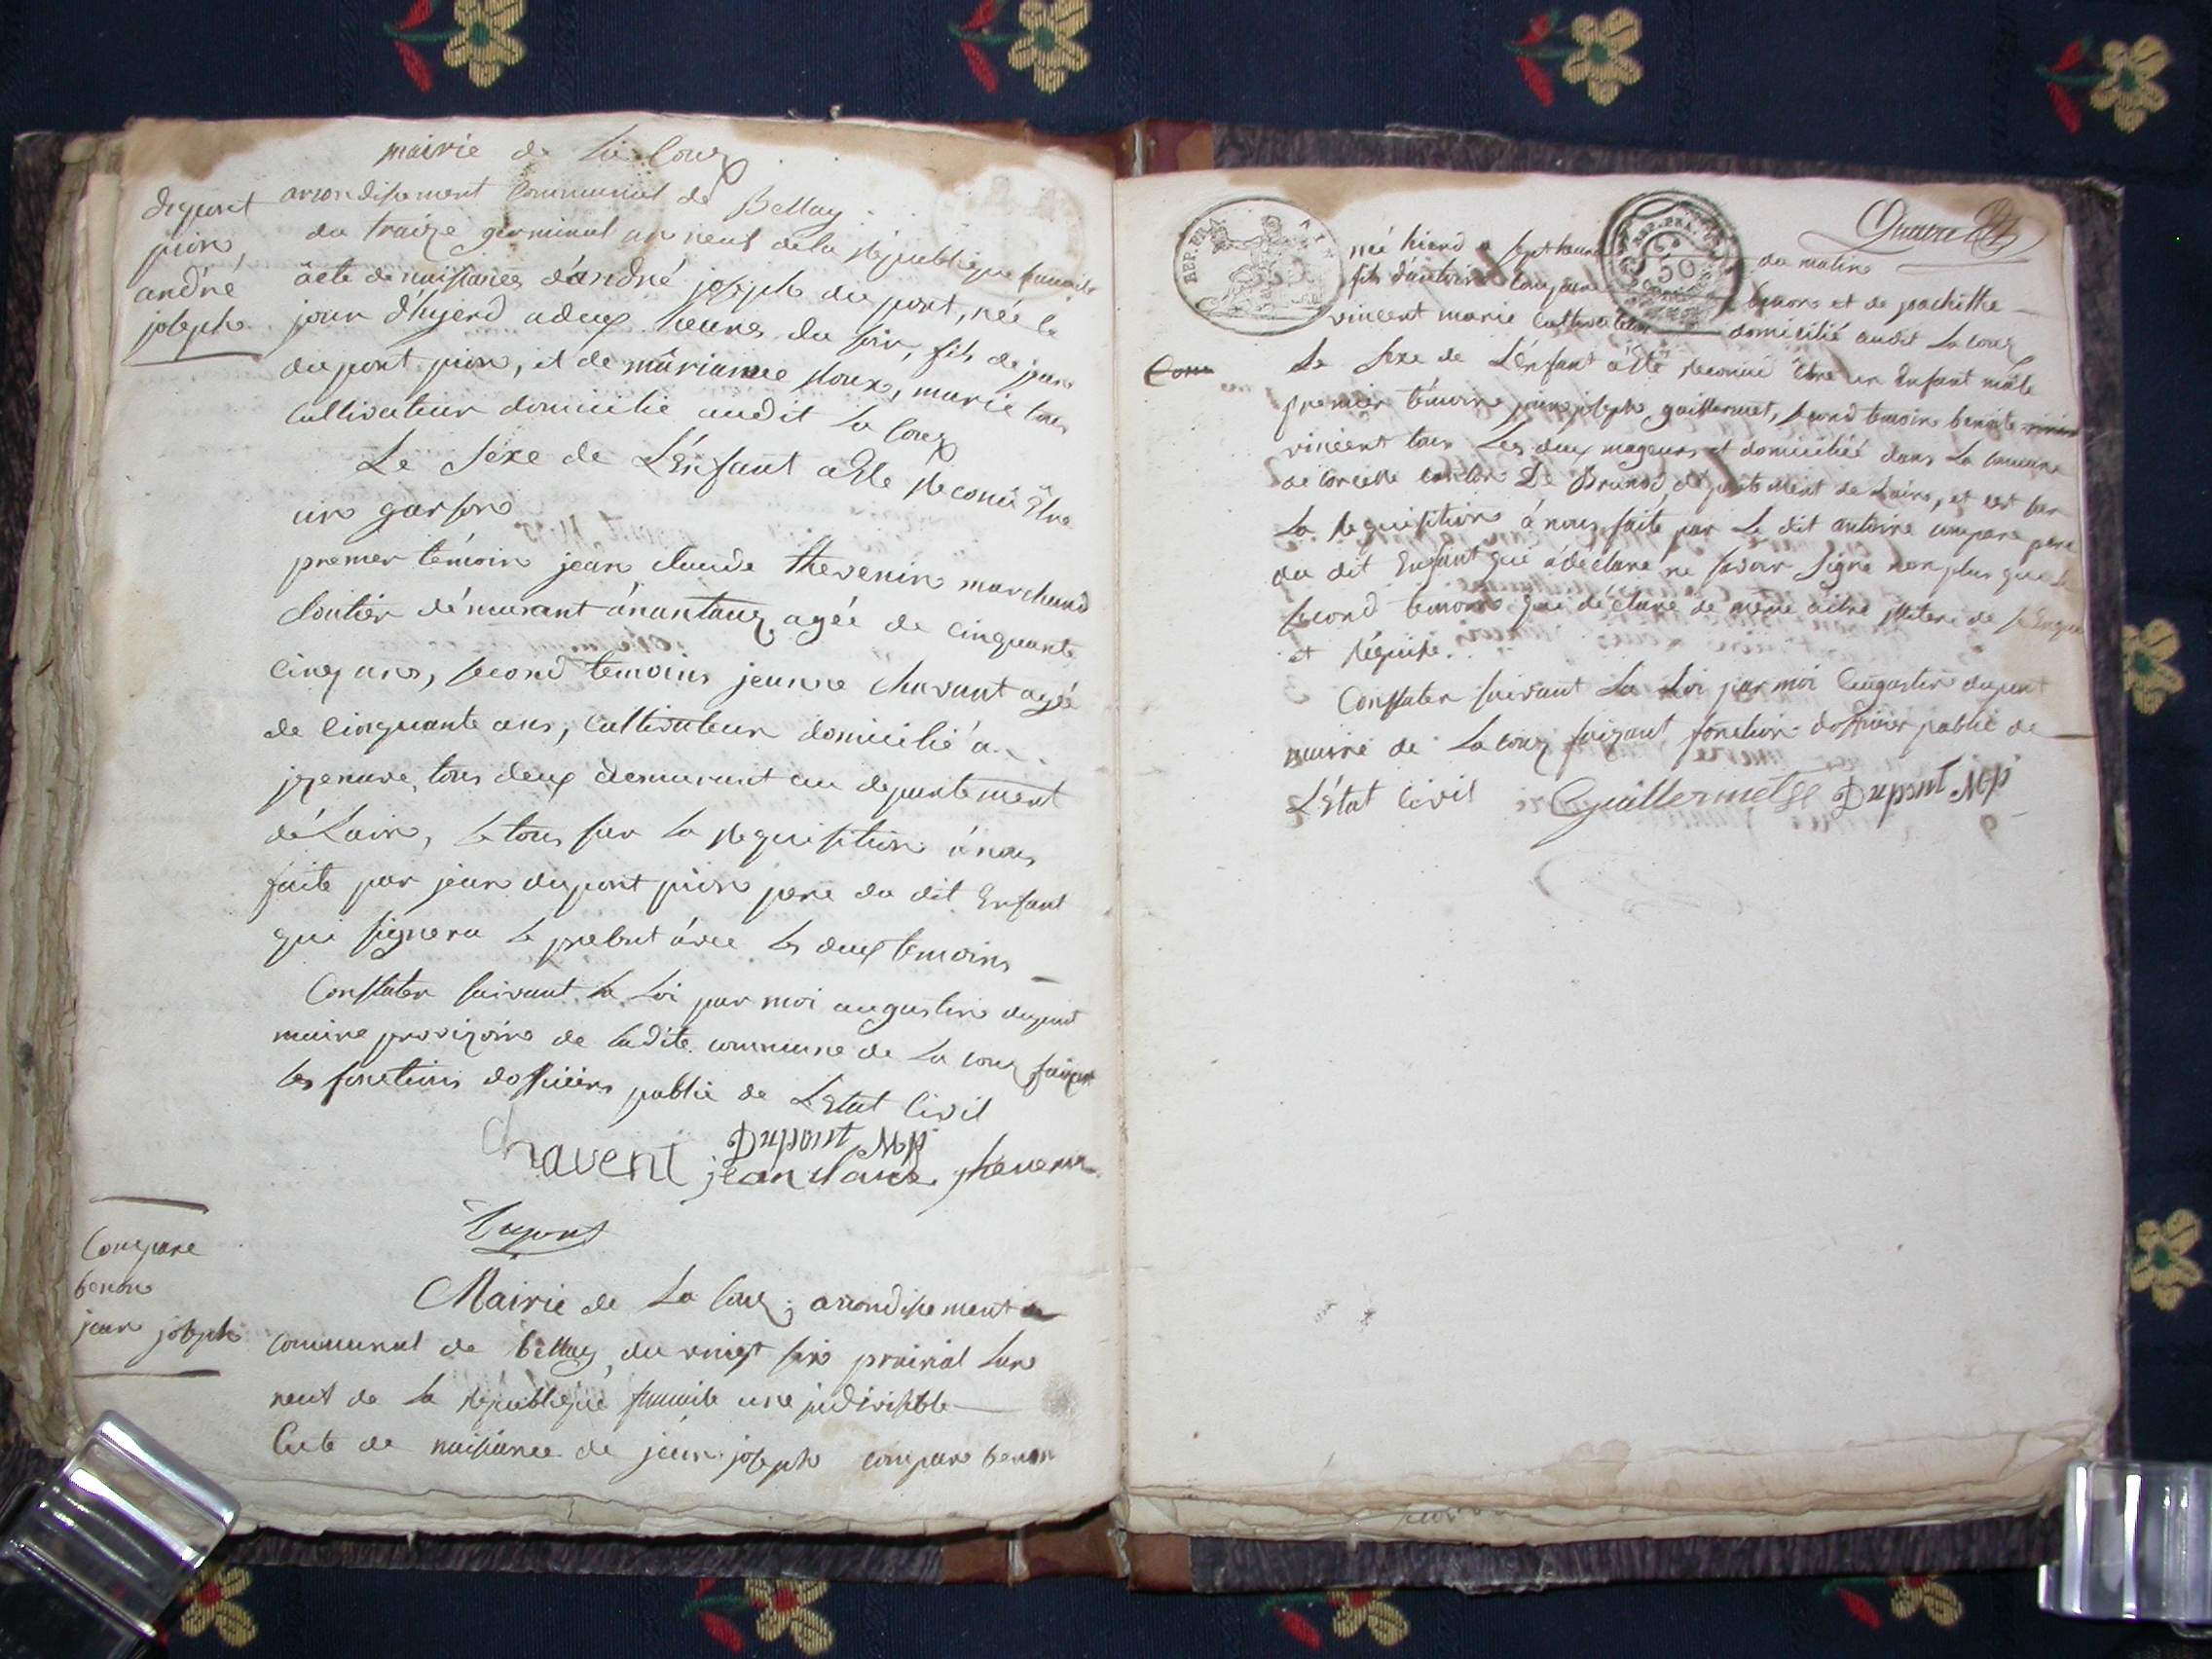 mairie de La Coux
arrondissement Communal de Bellay
du traize germinal an neuf de la République francaise
dupont
pion,
andré
joseph
âcte de naissances d'andré joseph dupont, née le
jour d'hyerd a deux heures du soir, fils de jean
dupont pion, et de mârianne Roux, marié tous
cultivateur domicilié audit La Coux
Le Sexe de L'Enfant a Ete Reconu Être
un garson
premier témoin jean claude thevenin marchand
cloutier démurant à nantaux, agée de cinquante
cinq ans, second temoins jeanne chavant agée
de cinquante ans, cultivateur domicilié a
izenave, tous deux demurant au departement
de Lain, Le tous sur La Requisition à nous
faite par jean dupont pion pere du dit Enfant
qui signera Le presbnt àvec les deux temoins
Constater suivant La Loi par moi augustin dupont
maire provizoire de ladite commune de La Coux faizant
les fonctions dofficiers public de L'Etat Civil
Dupont Mp
Chavent jean claude thevenin
Dupont
Compare
benon
jean joseph
Mairie de La Coux; arrondissement
communal de bellay, du vingt six prairial Lan
neuf de La Republique francaise une indivisible
Acte de naissance de jean joseph compare benon
né hierd a sept heure du matin
fils d'antoine compare benon et de pachitthe
vincent marie cultivateur domicilié audit La Coux
Com
Le Sexe de L'Enfant a Eté Reconue être un Enfant mâle
premier témoin jean joseph guillermet, second temoin benoite
vincent tous Les deux mageurs et domiciliée dans La Comune
de Corcelle canton De Brunod, département de Lain, et est sur
La Requisition à nous faite par Le dit antoine compare pere
du dit Enfant qui à déclare ne savoir signé non plus que le
second temoin qui déclare de même
et Réquise.
Constater suivant La Loi par moi augustin dupont
mairie de La Coux faizant fonction dofficier public de
L'État Civil Guillermet Dupont Mp
REP. FRA.
50